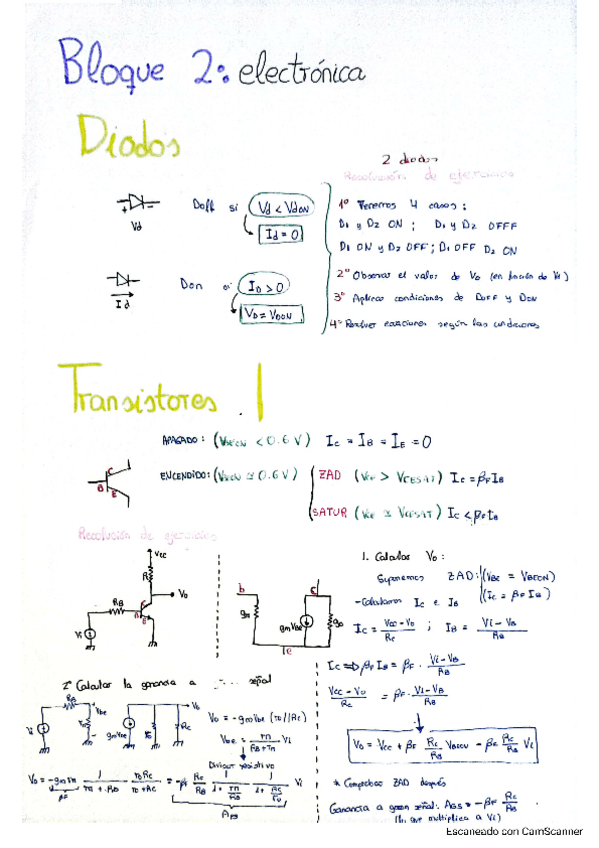 Bloque 2: electrónica
Diodos
2 diodos
Resolución de ejercicios
Doff si Vd < Vdon
Vd
Id = 0
Don si ID > 0
Id
VD = VDON
1º Tenemos 4 casos:
D1 y D2 ON ; D1 y D2 OFFF
D1 ON y D2 OFF ; D1 OFF D2 ON
2º Observar el valor de Vo (en función de Vi)
3º Aplicar condiciones de DOFF y DON
4º Resolver ecuaciones según las condiciones
Transistores 1
APAGADO: (VBEON < 0.6 V) Ic = IB = IE = 0
C
B
E
ENCENDIDO: (VBEON ≃ 0.6 V)
ZAD (VCE > VCESAT) Ic = βF IB
SATUR (VCE ≃ VCESAT) Ic < βF IB
Resolución de ejercicios
Vcc
R
Vo
RB
C
B
E
Vi
b
C
gπ
gm VBE
go
1. Calcular Vo:
Suponemos ZAD: (VBE = VBEON)
(Ic = βF IB)
- Calculamos Ic e IB
Ic = Vcc - Vo / Rc ; IB = Vi - VB / RB
Ic => βF IB = βF . Vi - VB / RB
Vcc - Vo / Rc = βF . Vi - VB / RB
Vo = Vcc + βF Rc / RB VBEON - βF Rc / RB Vi
* Comprobar ZAD después
Ganancia a gran señal: AGS = - βF Rc / RB
(lo que multiplica a Vi)
2º Calcular la ganancia a señal
RB
Vbe
Vi
rπ
gm Vbe
ro
Rc
Vo
Vo = - gm Vbe (ro // Rc)
Vbe = rπ / RB + rπ Vi
Divisor resistivo
Vo = - gm rπ 1 / rπ + RB ro Rc / ro + Rc = - βF Rc / RB 1 / 1 + rπ / RB 1 / 1 + Rc / ro Vi
βF
Escaneado con CamScanner